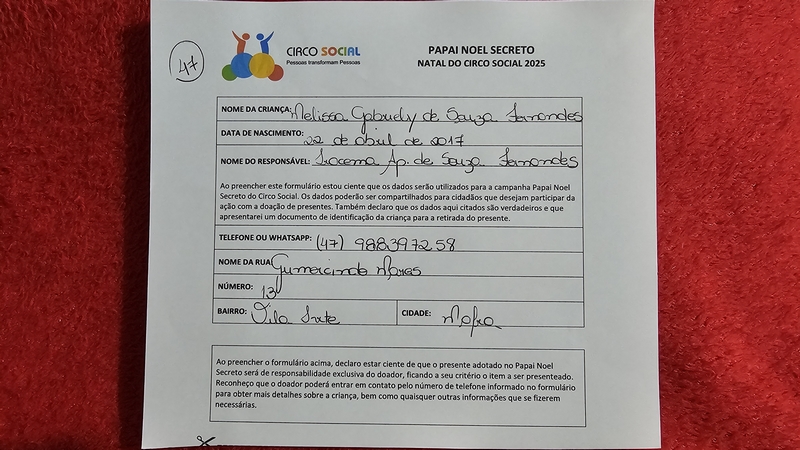 47
CIRCO SOCIAL
Pessoas transformam Pessoas
PAPAI NOEL SECRETO
NATAL DO CIRCO SOCIAL 2025
NOME DA CRIANÇA: Melissa Gabriely de Souza Fernandes
DATA DE NASCIMENTO: 22 de abril de 2017
NOME DO RESPONSÁVEL: Iracema Ap. de Souza Fernandes
Ao preencher este formulário estou ciente que os dados serão utilizados para a campanha Papai Noel
Secreto do Circo Social. Os dados poderão ser compartilhados para cidadãos que desejam participar da
ação com a doação de presentes. Também declaro que os dados aqui citados são verdadeiros e que
apresentarei um documento de identificação da criança para a retirada do presente.
TELEFONE OU WHATSAPP: (47) 988397258
NOME DA RUA: Gumercindo Moras
NÚMERO: 131
BAIRRO: Vila Ivete CIDADE: Mafra
Ao preencher o formulário acima, declaro estar ciente de que o presente adotado no Papai Noel
Secreto será de responsabilidade exclusiva do doador, ficando a seu critério o item a ser presenteado.
Reconheço que o doador poderá entrar em contato pelo número de telefone informado no formulário
para obter mais detalhes sobre a criança, bem como quaisquer outras informações que se fizerem
necessárias.